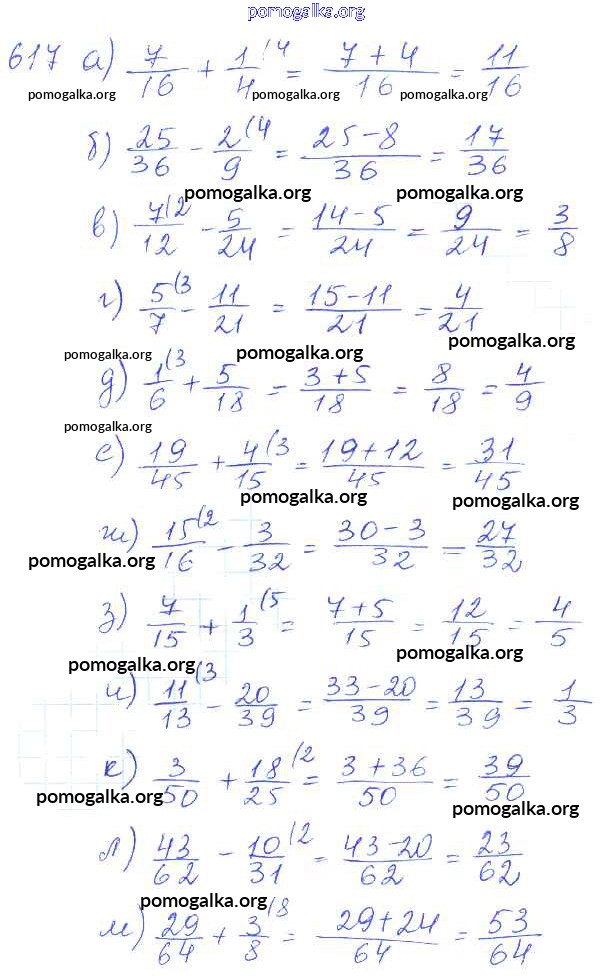 pomogalka.org
617 а) 7/16 + 1/4 (4 = 7+4/16 = 11/16
pomogalka.org pomogalka.org pomogalka.org
б) 25/36 - 2/9 (4 = 25-8/36 = 17/36
pomogalka.org pomogalka.org
в) 7/12 (2 - 5/24 = 14-5/24 = 9/24 = 3/8
г) 5/7 (3 - 11/21 = 15-11/21 = 4/21
pomogalka.org pomogalka.org pomogalka.org
д) 1/6 (3 + 5/18 = 3+5/18 = 8/18 = 4/9
pomogalka.org
е) 19/45 + 4/15 (3 = 19+12/45 = 31/45
pomogalka.org pomogalka.org
ж) 15/16 (2 - 3/32 = 30-3/32 = 27/32
pomogalka.org pomogalka.org
з) 7/15 + 1/3 (5 = 7+5/15 = 12/15 = 4/5
pomogalka.org pomogalka.org
и) 11/13 (3 - 20/39 = 33-20/39 = 13/39 = 1/3
к) 3/50 + 18/25 (2 = 3+36/50 = 39/50
pomogalka.org pomogalka.org
л) 43/62 - 10/31 (2 = 43-20/62 = 23/62
pomogalka.org pomogalka.org
м) 29/64 + 3/8 (8 = 29+24/64 = 53/64